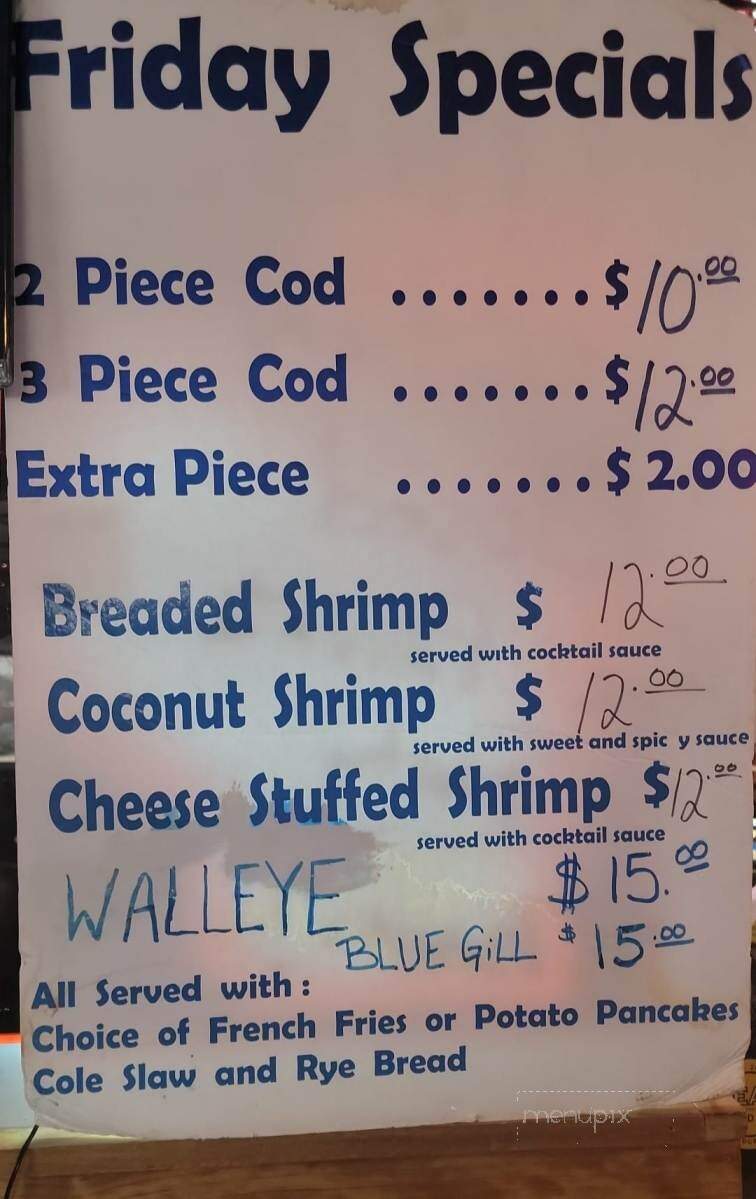 Friday Specials
2 Piece Cod ....... $10.00
3 Piece Cod ....... $12.00
Extra Piece ....... $ 2.00
Breaded Shrimp $ 12.00
served with cocktail sauce
Coconut Shrimp $ 12.00
served with sweet and spic y sauce
Cheese Stuffed Shrimp $12.00
served with cocktail sauce
WALLEYE $15.00
BLUE GiLL $15.00
All Served with :
Choice of French Fries or Potato Pancakes
Cole Slaw and Rye Bread
menupix